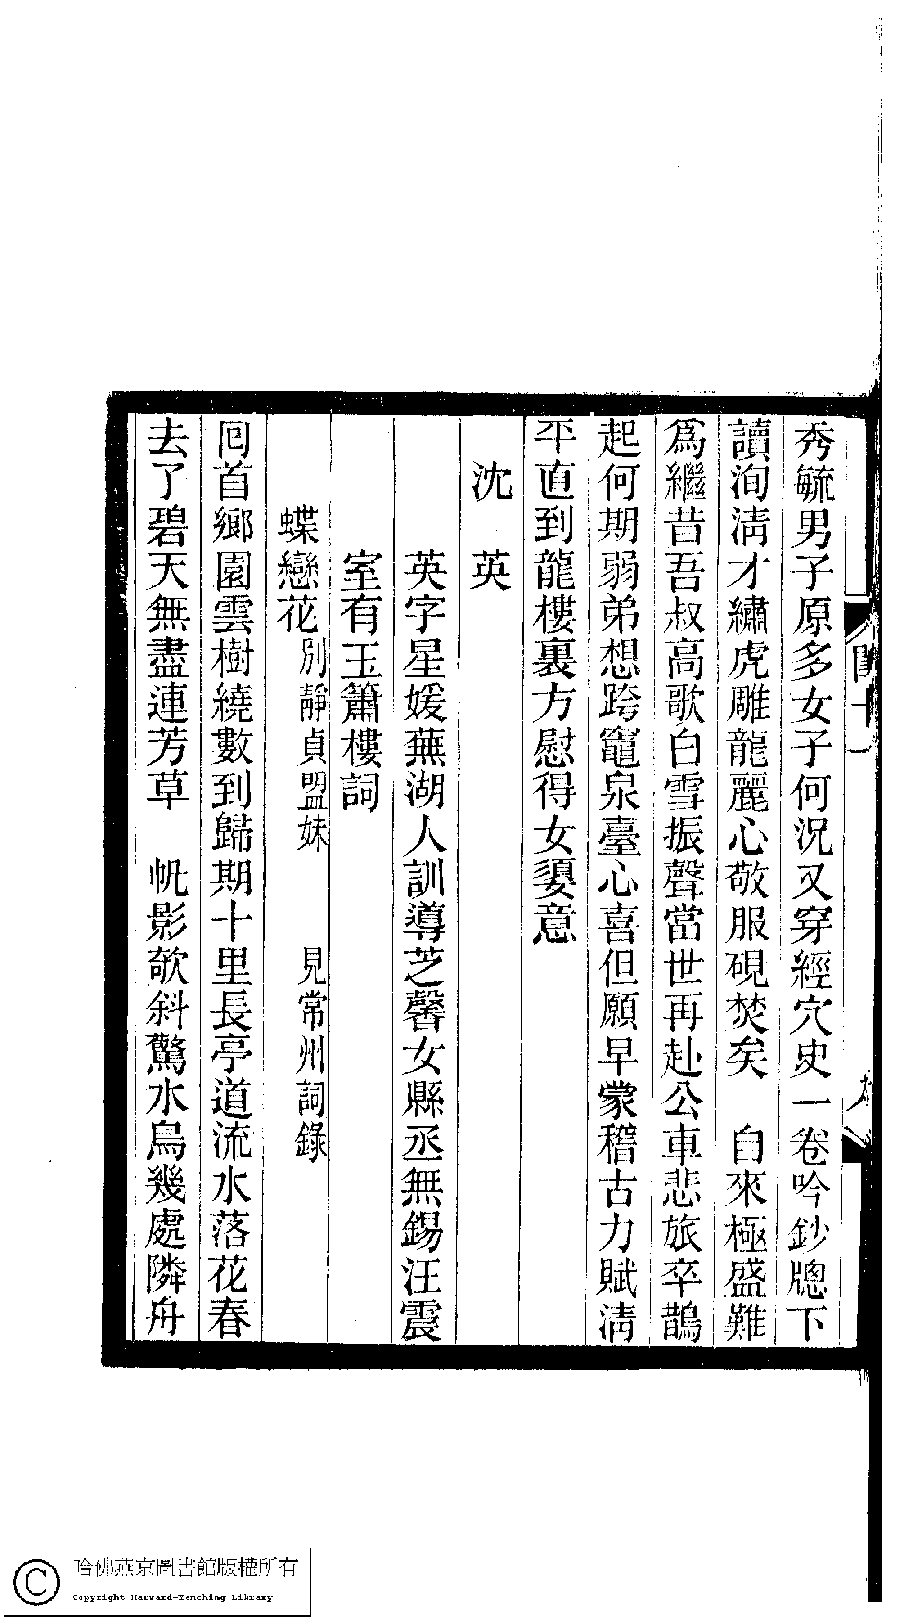 秀毓男子原多女子何況又穿經穴史一卷吟鈔牕下
讀洵淸才繡虎雕龍麗心敬服硯焚矣　自來極盛難
爲繼昔吾叔高歌白雪振聲當世再赴公車悲旅卒鵲
起何期弱弟想跨竈泉臺心喜但願早蒙稽古力賦淸
平直到龍樓裏方慰得女嬃意
沈　英
英字星媛蕪湖人訓導芝馨女縣丞無錫汪震
室有玉簫樓詞
蝶戀花別靜貞盟妹　見常州詞錄
囘首鄉園雲樹繞數到歸期十里長亭道流水落花春
去了碧天無盡連芳草　帆影欹斜驚水鳥幾處隣舟
哈佛燕京圖書館版權所有
Copyright Harvard-Yenching Library